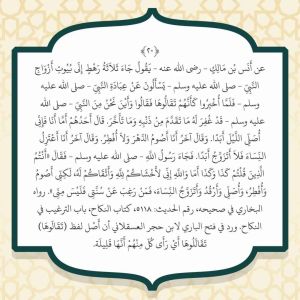 ﴿٢٠﴾
عن أَنَس بْن مَالِكٍ - رضى الله عنه - يَقُولُ جَاءَ ثَلَاثَةُ رَهْطٍ إِلَى بُيُوتِ أَزْوَاجِ
النَّبِيِّ - صلى الله عليه وسلم - يَسْأَلُونَ عَنْ عِبَادَةِ النَّبِيِّ - صلى الله عليه
وسلم - فَلَمَّا أُخْبِرُوا كَأَنَّهُمْ تَقَالُّوهَا فَقَالُوا وَأَيْنَ نَحْنُ مِنَ النَّبِيِّ - صلى الله عليه
وسلم - قَدْ غُفِرَ لَهُ مَا تَقَدَّمَ مِنْ ذَنْبِهِ وَمَا تَأَخَّرَ. قَالَ أَحَدُهُمْ أَمَّا أَنَا فَإِنِّي
أُصَلِّي اللَّيْلَ أَبَدًا. وَقَالَ آخَرُ أَنَا أَصُومُ الدَّهْرَ وَلَا أُفْطِرُ. وَقَالَ آخَرُ أَنَا أَعْتَزِلُ
النِّسَاءَ فَلَا أَتَزَوَّجُ أَبَدًا. فَجَاءَ رَسُولُ اللَّهِ - صلى الله عليه وسلم - فَقَالَ «أَنْتُمُ
الَّذِينَ قُلْتُمْ كَذَا وَكَذَا أَمَا وَاللَّهِ إِنِّي لَأَخْشَاكُمْ لِلَّهِ وَأَتْقَاكُمْ لَهُ، لَكِنِّي أَصُومُ
وَأُفْطِرُ، وَأُصَلِّي وَأَرْقُدُ وَأَتَزَوَّجُ النِّسَاءَ، فَمَنْ رَغِبَ عَنْ سُنَّتِي فَلَيْسَ مِنِّي». رواه
البخاري في صحيحه، رقم الحديث: ٥١١٨، كتاب النكاح، باب الترغيب في
النكاح. ورد في فتح الباري لابن حجر العسقلاني أن أصْل لفظ (تَقَالُّوهَا)
تَقَالَلُوهَا أَيْ رَأَى كُلٌّ مِنْهُمْ أَنَّهَا قَلِيلَة.